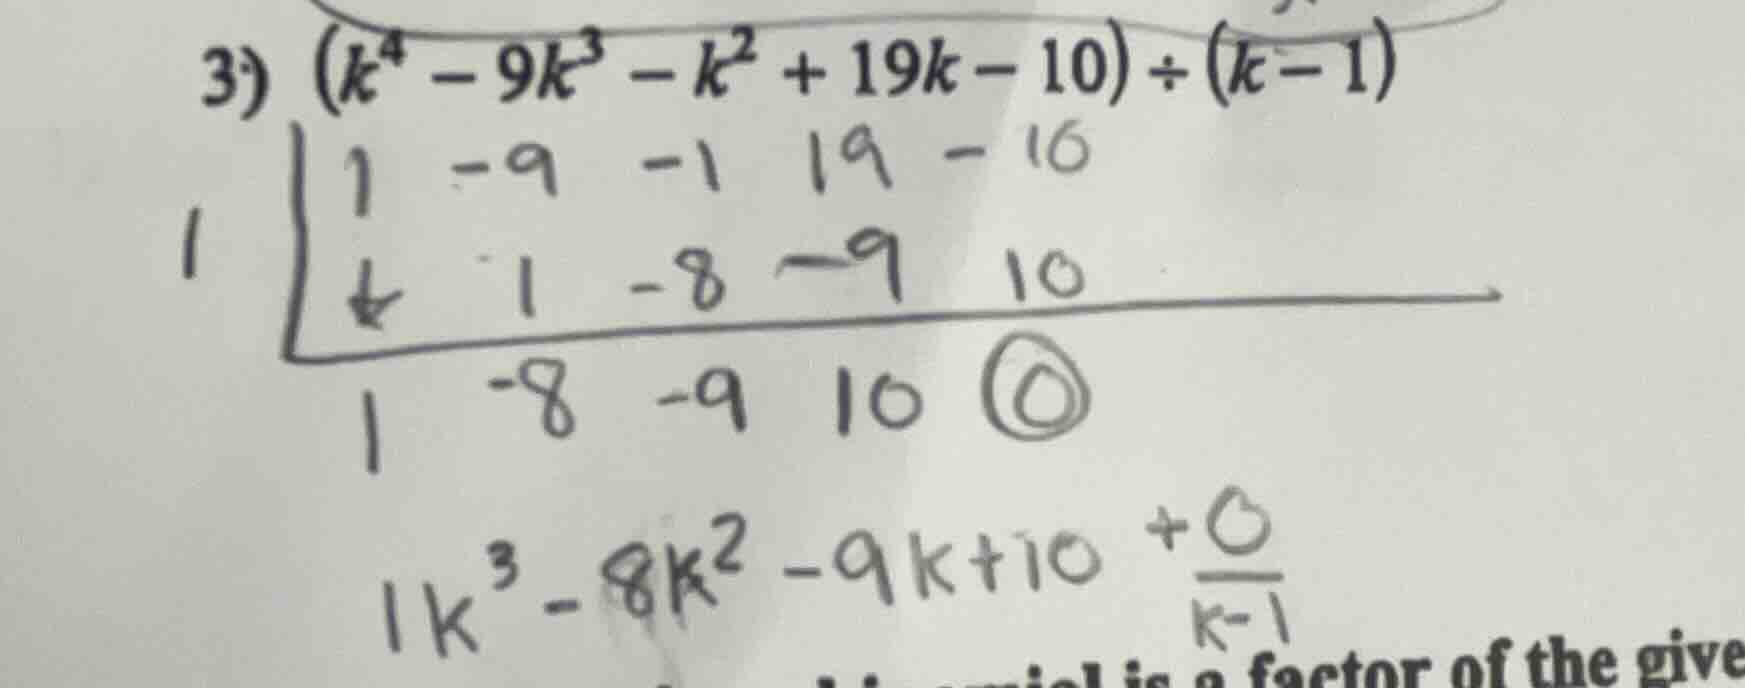 3) (k⁴ − 9k³ − k² + 19k − 10) ÷ (k − 1)
1 -9 -1 19 -10
1
1 -8 -9 10
1 -8 -9 10 0
1k³ - 8k² - 9k + 10 + 0/k-1
is a factor of the give